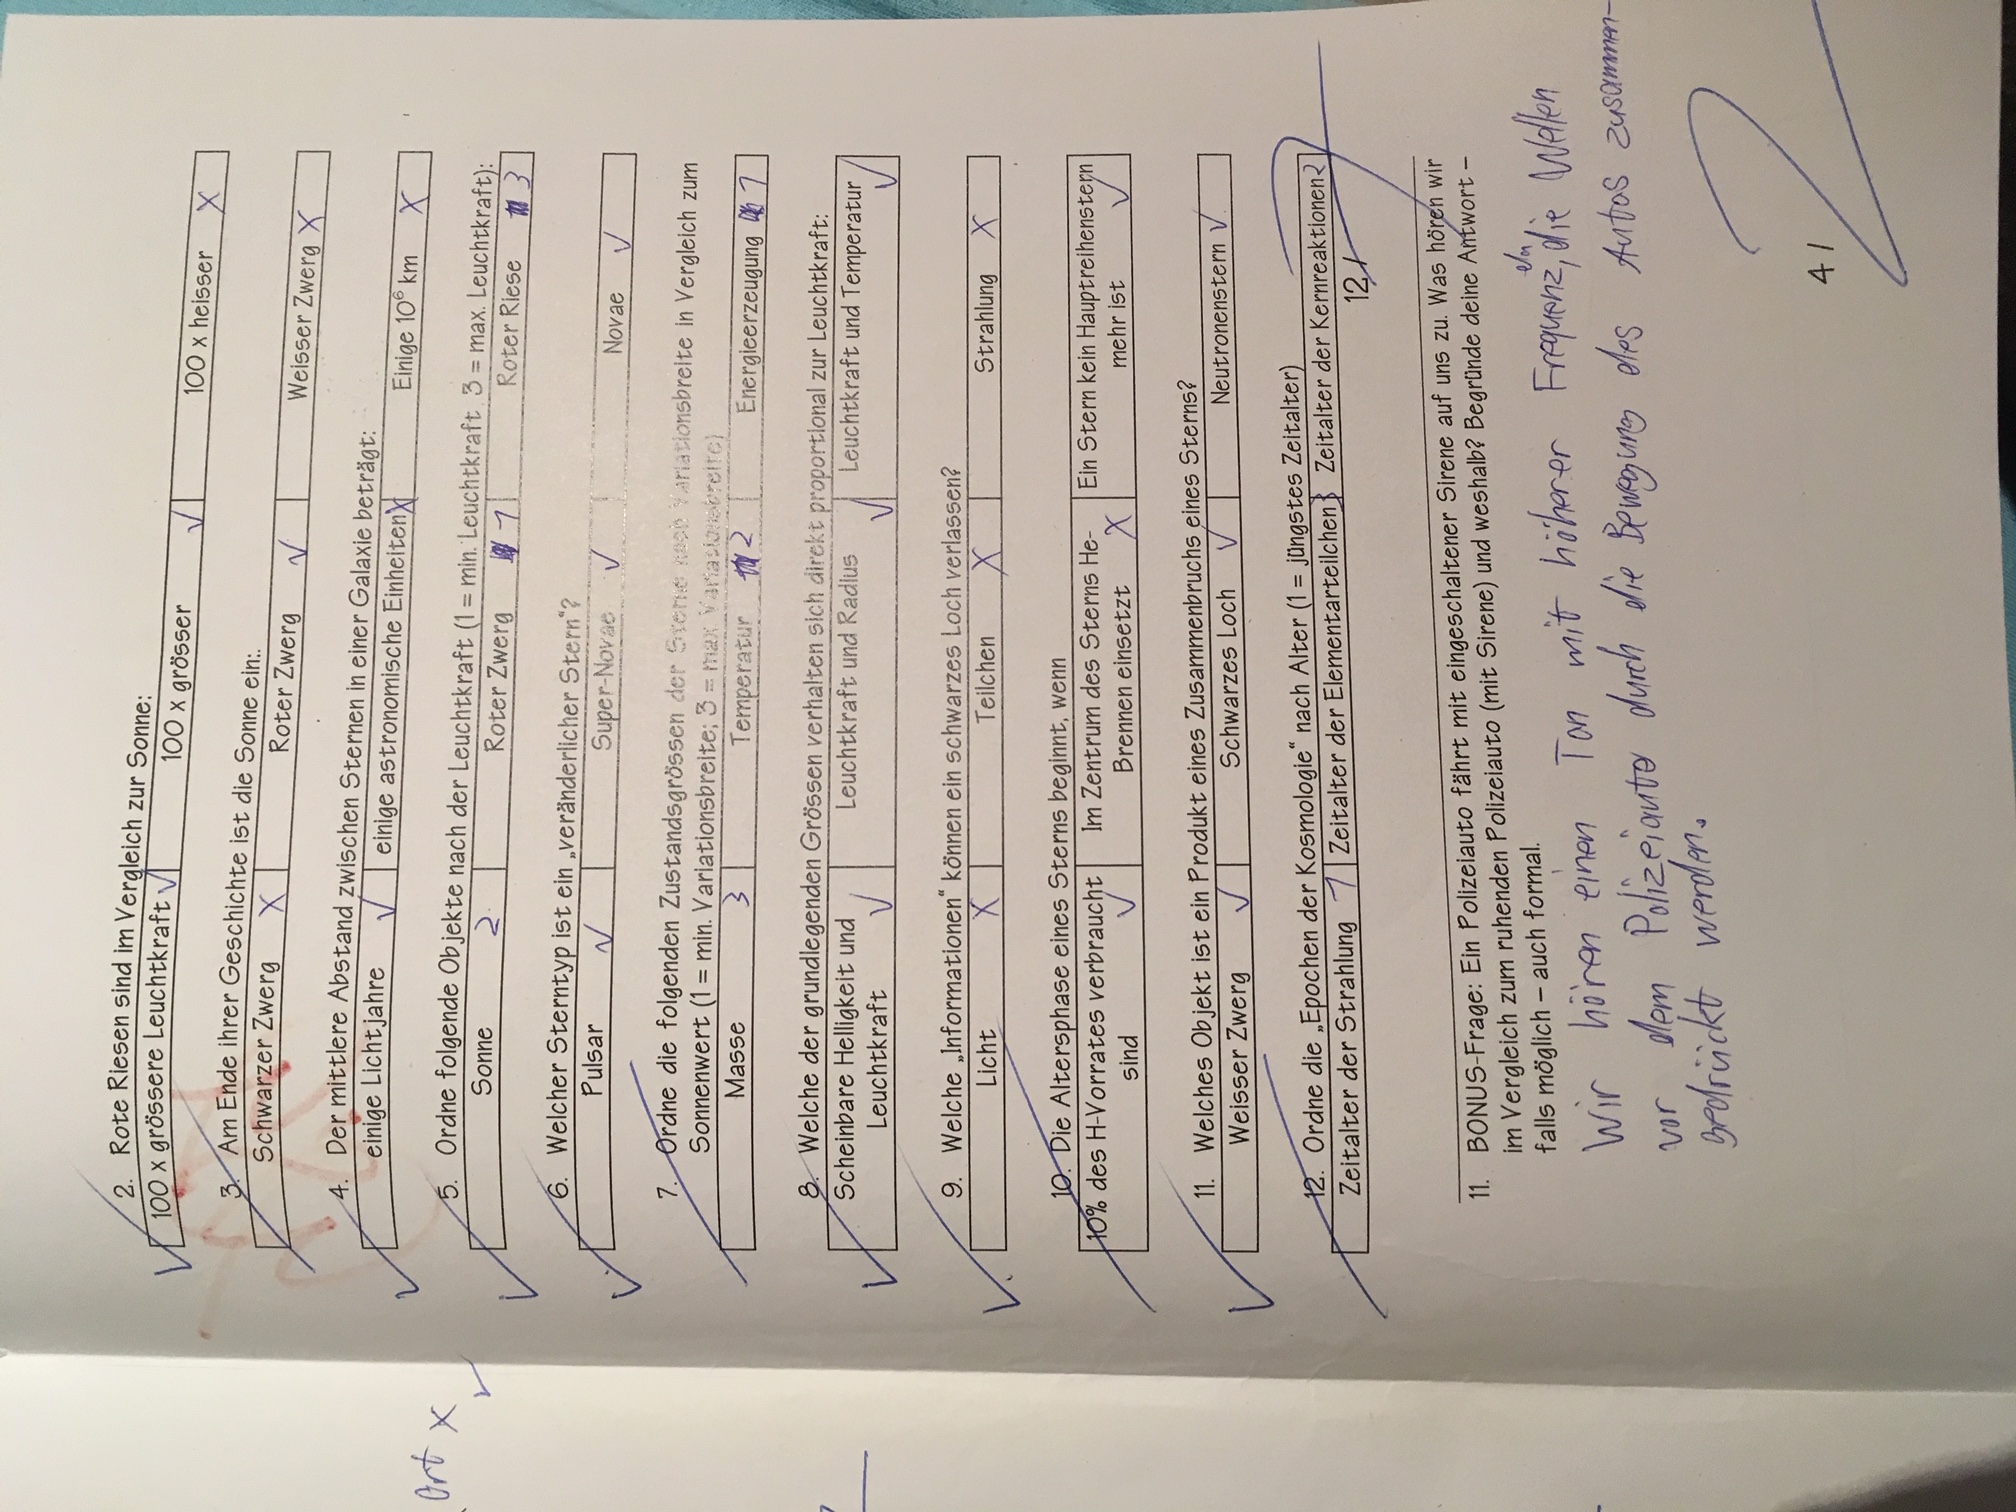 2. Rote Riesen sind im Vergleich zur Sonne:
100 x grössere Leuchtkraft ✓ 100 x grösser ✓ 100 x heisser X
3. Am Ende ihrer Geschichte ist die Sonne ein:.
Schwarzer Zwerg X Roter Zwerg ✓ Weisser Zwerg X
4. Der mittlere Abstand zwischen Sternen in einer Galaxie beträgt:
einige Lichtjahre ✓ einige astronomische Einheiten X Einige 10⁶ km X
Ort X
5. Ordne folgende Objekte nach der Leuchtkraft (1 = min. Leuchtkraft 3 = max. Leuchtkraft):
Sonne 2 Roter Zwerg 1 Roter Riese 3
6. Welcher Sterntyp ist ein „veränderlicher Stern"?
Pulsar ✓ Super-Novae ✓ Novae ✓
7. Ordne die folgenden Zustandsgrössen der Sterne nach Variationsbreite in Vergleich zum
Sonnenwert (1 = min. Variationsbreite; 3 = max Variationsbreite)
Masse 3 Temperatur 2 Energieerzeugung 1
8. Welche der grundlegenden Grössen verhalten sich direkt proportional zur Leuchtkraft:
Scheinbare Helligkeit und Leuchtkraft und Radius Leuchtkraft und Temperatur
Leuchtkraft ✓ ✓ ✓
9. Welche „Informationen" können ein schwarzes Loch verlassen?
Licht X Teilchen X Strahlung X
10. Die Altersphase eines Sterns beginnt, wenn
10% des H-Vorrates verbraucht Im Zentrum des Sterns He- Ein Stern kein Hauptreihenstern
sind ✓ Brennen einsetzt X mehr ist ✓
11. Welches Objekt ist ein Produkt eines Zusammenbruchs eines Sterns?
Weisser Zwerg ✓ Schwarzes Loch ✓ Neutronenstern ✓
12. Ordne die „Epochen der Kosmologie" nach Alter (1 = jüngstes Zeitalter)
Zeitalter der Strahlung 1 Zeitalter der Elementarteilchen 3 Zeitalter der Kernreaktionen 2
12 / 7
11. BONUS-Frage: Ein Polizeiauto fährt mit eingeschaltener Sirene auf uns zu. Was hören wir
im Vergleich zum ruhenden Polizeiauto (mit Sirene) und weshalb? Begründe deine Antwort –
falls möglich – auch formal.
Wir hören einen Ton mit höherer Frequenz, da die Wellen
vor dem Polizeiauto durch die Bewegung des Autos zusammen-
gedrückt werden.
4 / 2